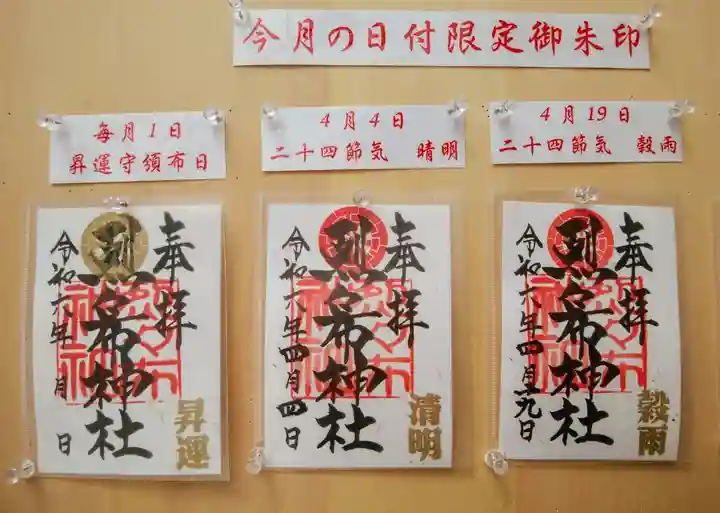 今月の日付限定御朱印
毎月1日
昇運守頒布日
4月4日
二十四節気 晴明
4月19日
二十四節気 穀雨
奉拝
烈々布神社
令和六年 月 日
昇運
奉拝
烈々布神社
令和六年四月四日
清明
奉拝
烈々布神社
令和六年四月十九日
穀雨